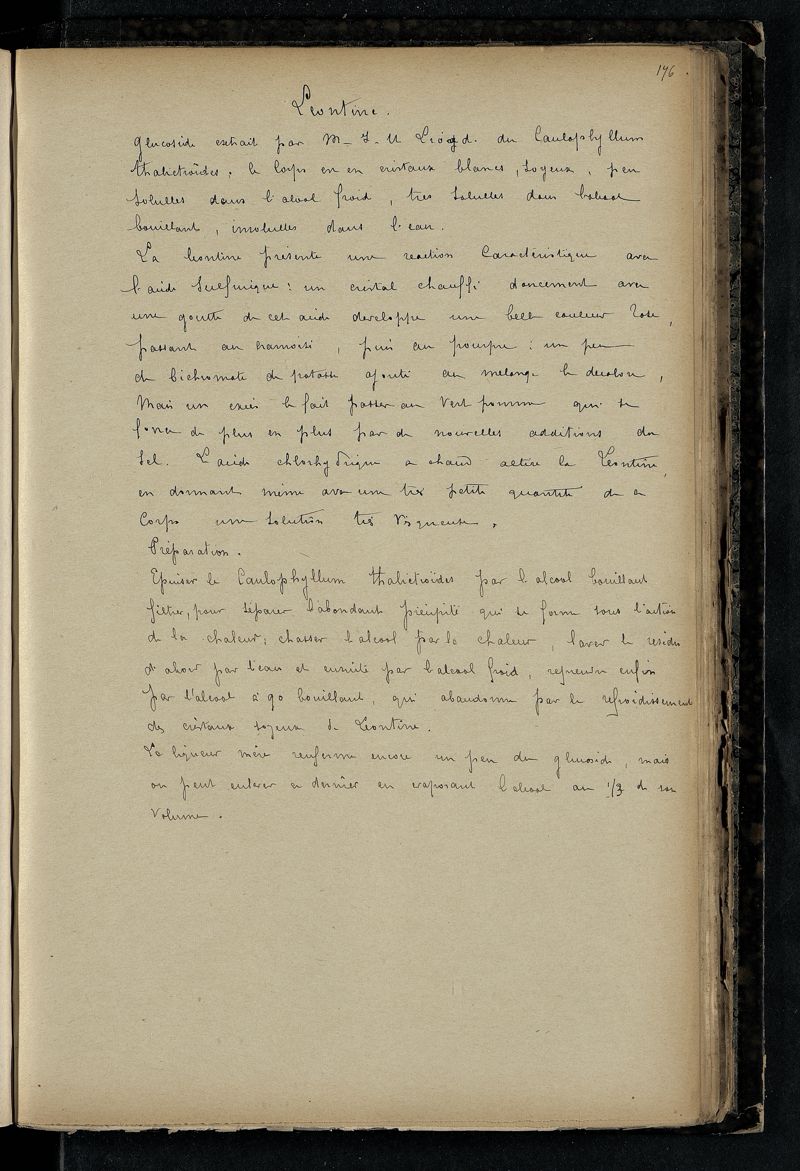 196.
Léontine.
Glucoside extrait par M- J- U Lloyd. du Caulophyllum
thalictroïdes. le Corps en en cristaux blancs, soyeux, peu
solubles dans l'alcool froid, très solubles dans l'alcool
bouillant, insolubles dans l'eau.
La leontine présente une reaction Caractéristique avec
l'acide sulfurique : un cristal chauffé doucement avec
une goutte de cet acide developpe une belle couleur rose,
passant au cramoisi, puis au pourpre : un peu
de bichromate de potasse ajouté au melange le decolore,
Mais un excès le fait passer au Vert pomme qui se
fonce de plus en plus par de nouvelles additions du
Sel. L'acide chlorhydrique a chaud altère la Leontine,
en donnant même avec une très petite quantité de ce
Corps une solution très Visqueuse.
Préparation.
Epuiser le Caulophyllum thalictroïdes par l'alcool bouillant
filtrer, pour séparer l'abondant précipité qui se forme sous l'action
de la chaleur; chasser l'alcool par la chaleur, laver le residu
d'abord par l'eau et ensuite par l'alcool froid, reprendre enfin
par l'alcool à 90 bouillant, qui abandonne par le refroidissement
des cristaux soyeux de Leontine.
La liqueur mère renferme encore un peu du glucoside, mais
on peut enlever ce dernier en evaporant l'alcool au 1/3 de son
Volume.